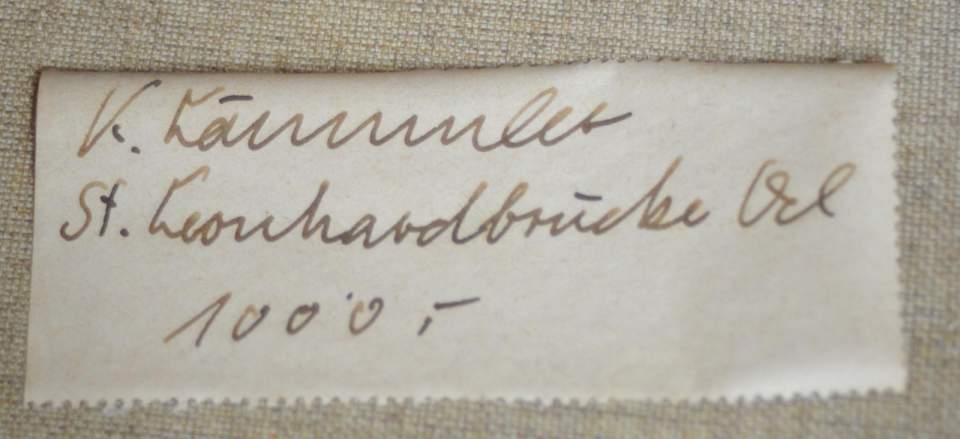 V. Kämmler
St. Leonhardbrücke Oel
1000,-